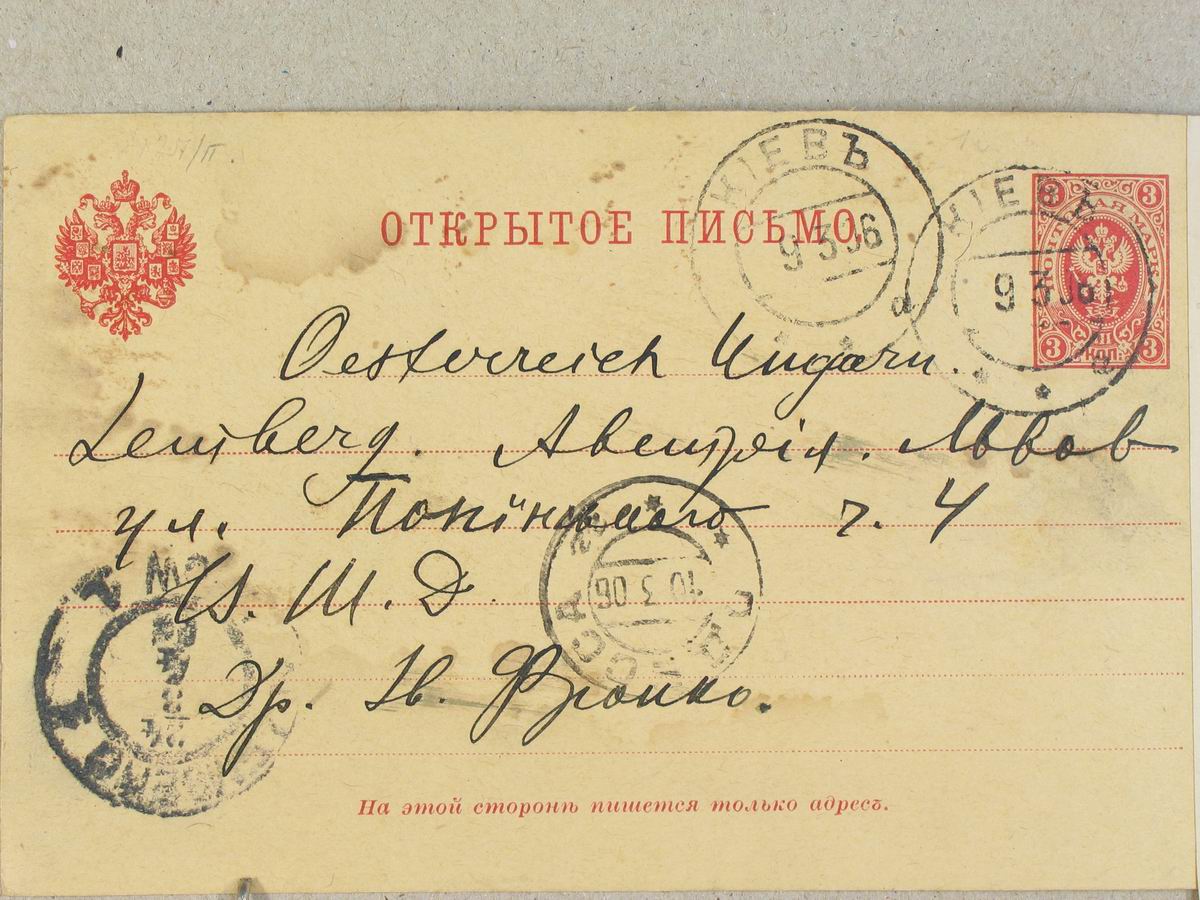 ОТКРЫТОЕ ПИСЬМО.
КІЕВЪ
9 3 06
а
КІЕВЪ
9 3 06
ПОЧТОВАЯ МАРКА
3 3
3 КОП. 3
Oesterreich Ungarn.
Lemberg. Австрія. Львов
ул. ч. 4
В. Ш. Д.
ОДЕССА
10 3 06
Др. Ів. Франко.
LEMBERG 1
На этой сторонѣ пишется только адресъ.